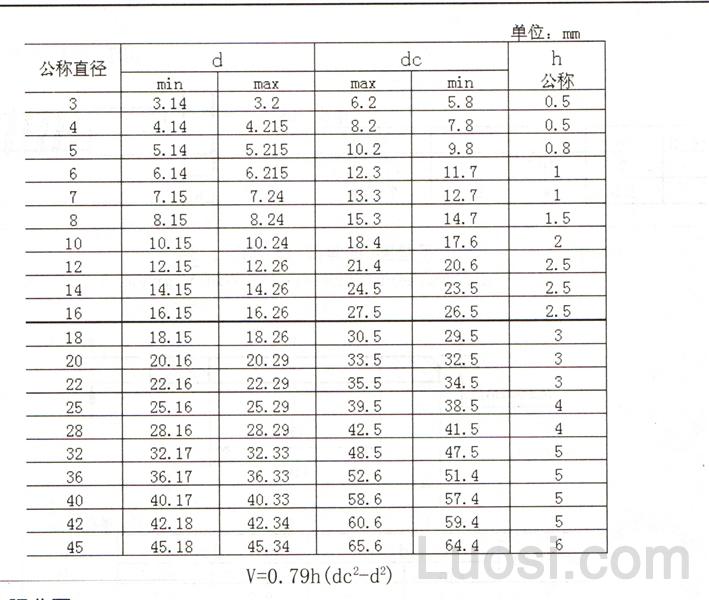 单位：mm
公称直径 d dc h
min max max min 公称
3 3.14 3.2 6.2 5.8 0.5
4 4.14 4.215 8.2 7.8 0.5
5 5.14 5.215 10.2 9.8 0.8
6 6.14 6.215 12.3 11.7 1
7 7.15 7.24 13.3 12.7 1
8 8.15 8.24 15.3 14.7 1.5
10 10.15 10.24 18.4 17.6 2
12 12.15 12.26 21.4 20.6 2.5
14 14.15 14.26 24.5 23.5 2.5
16 16.15 16.26 27.5 26.5 2.5
18 18.15 18.26 30.5 29.5 3
20 20.16 20.29 33.5 32.5 3
22 22.16 22.29 35.5 34.5 3
25 25.16 25.29 39.5 38.5 4
28 28.16 28.29 42.5 41.5 4
32 32.17 32.33 48.5 47.5 5
36 36.17 36.33 52.6 51.4 5
40 40.17 40.33 58.6 57.4 5
42 42.18 42.34 60.6 59.4 5
45 45.18 45.34 65.6 64.4 6
Luosi.com
V=0.79h(dc²-d²)